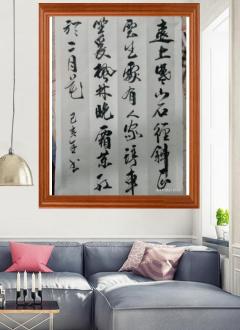 遠上寒山石徑斜白
雲生處有人家停車
坐愛楓林晚霜葉紅
於二月花
己亥年書